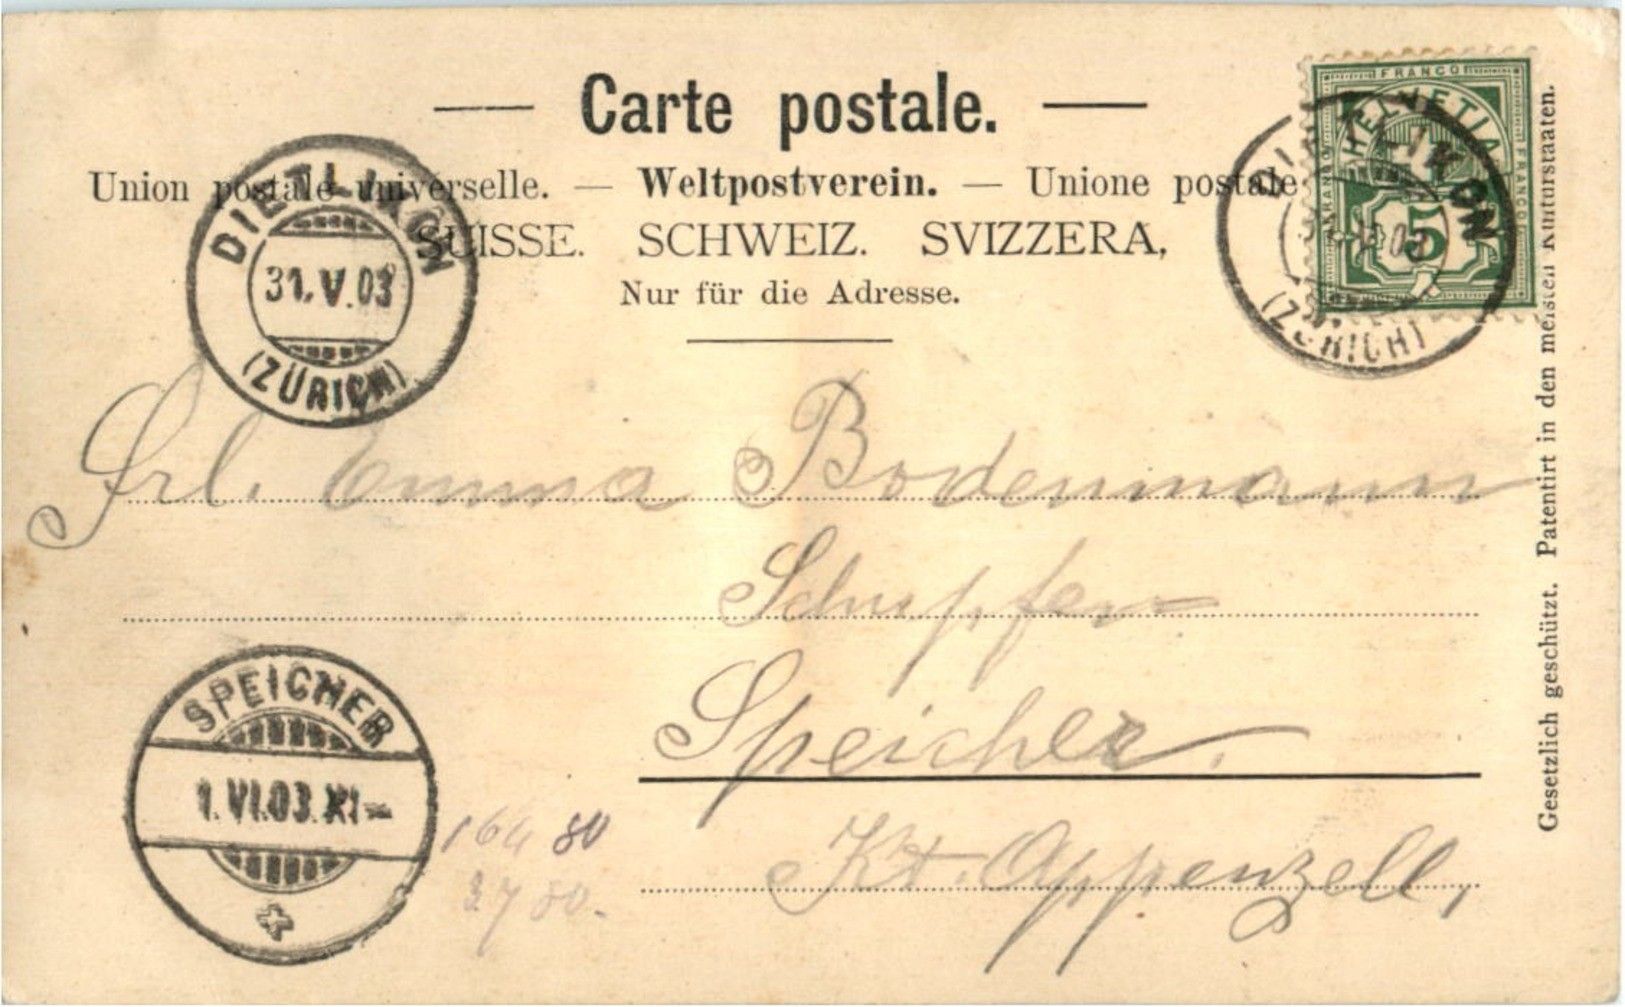 Carte postale.
Union postale universelle. — Weltpostverein. — Unione postale
SUISSE. SCHWEIZ. SVIZZERA,
Nur für die Adresse.
DIETLIKON
31.V.03
(ZÜRICH)
FRANCO
HELVETIA
FRANCO
5
DIETLIKON
(ZÜRICH)
Frl. Emma Bodenmann
Schupfen
Speicher.
Kt. Appenzell,
SPEICHER
1.VI.03.XI-
164 80
3780.
Gesetzlich geschützt. Patentirt in den meisten Kulturstaaten.